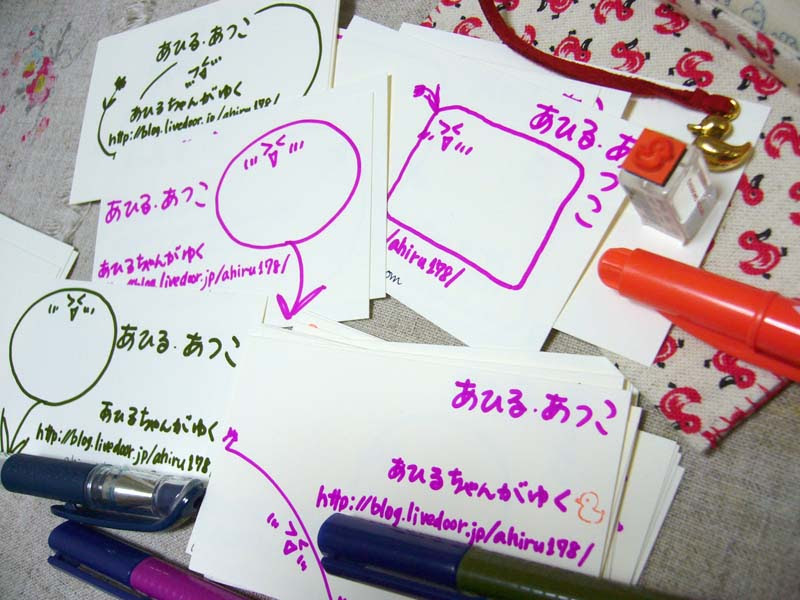 あひる・あつこ
あひるちゃんがゆく
http://blog.livedoor.jp/ahiru178/
あひる・あつこ
あひるちゃんがゆく
blog.livedoor.jp/ahiru178/
あひる・あ
つこ
/ahiru178/
om
あひる・あつこ
あひるちゃんがゆく
http://blog.livedoor.jp/ahiru178
あひる・あつこ
あひるちゃんがゆく
http://blog.livedoor.jp/ahiru178/